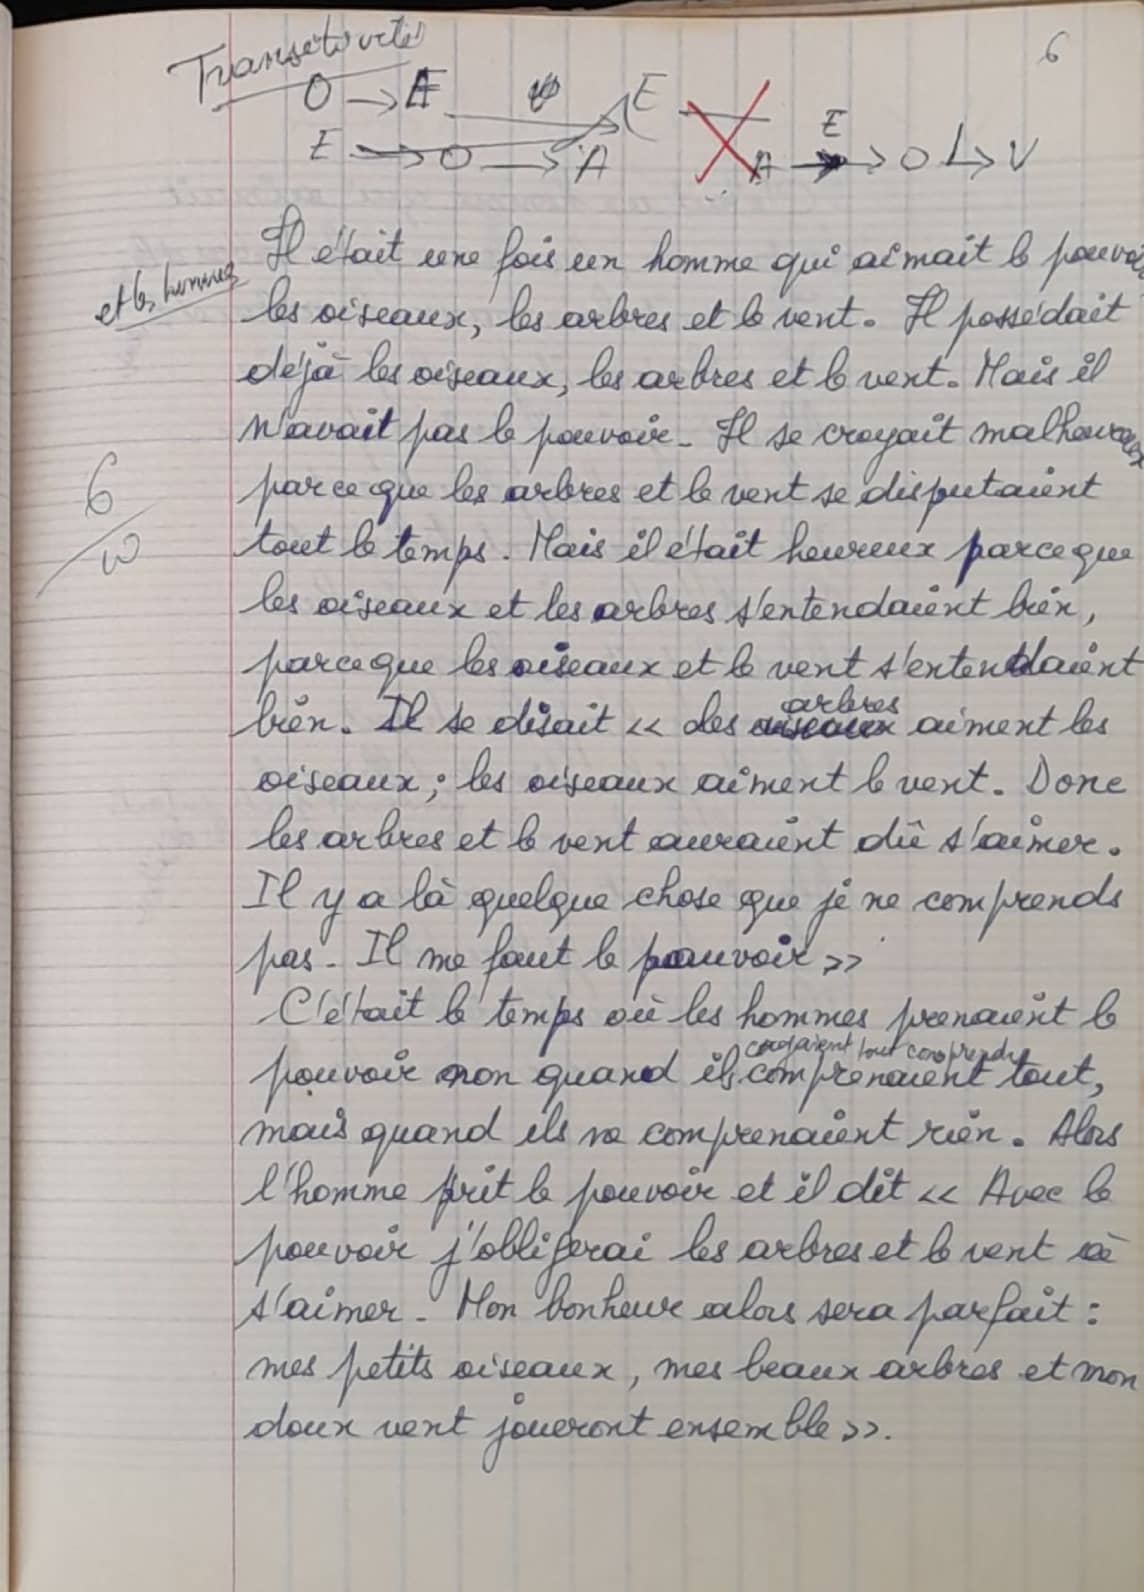 Transitivité
6
O → A E
E → O → A
A → E → O → V
Il était une fois un homme qui aimait le pouvoir
et les hommes
les oiseaux, les arbres et le vent. Il possédait
déjà les oiseaux, les arbres et le vent. Mais il
n'avait pas le pouvoir. Il se croyait malheureux
parce que les arbres et le vent se disputaient
6
tout le temps. Mais il était heureux parce que
les oiseaux et les arbres s'entendaient bien,
parce que les oiseaux et le vent s'entendaient
arbres
bien. Il se disait << les oiseaux aiment les
oiseaux ; les oiseaux aiment le vent. Donc
les arbres et le vent auraient dû s'aimer.
Il y a là quelque chose que je ne comprends
pas. Il me faut le pouvoir >>
C'était le temps où les hommes prenaient le
croyaient tout comprendre
pouvoir non quand ils comprenaient tout,
mais quand ils ne comprenaient rien. Alors
l'homme prit le pouvoir et il dit << Avec le
pouvoir j'obligerai les arbres et le vent à
s'aimer. Mon bonheur alors sera parfait :
mes petits oiseaux, mes beaux arbres et mon
doux vent joueront ensemble >>.